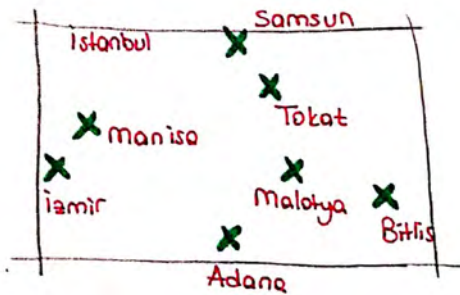 Samsun
istanbul
Tokat
Manisa
izmir
Malatya
Bitlis
Adana